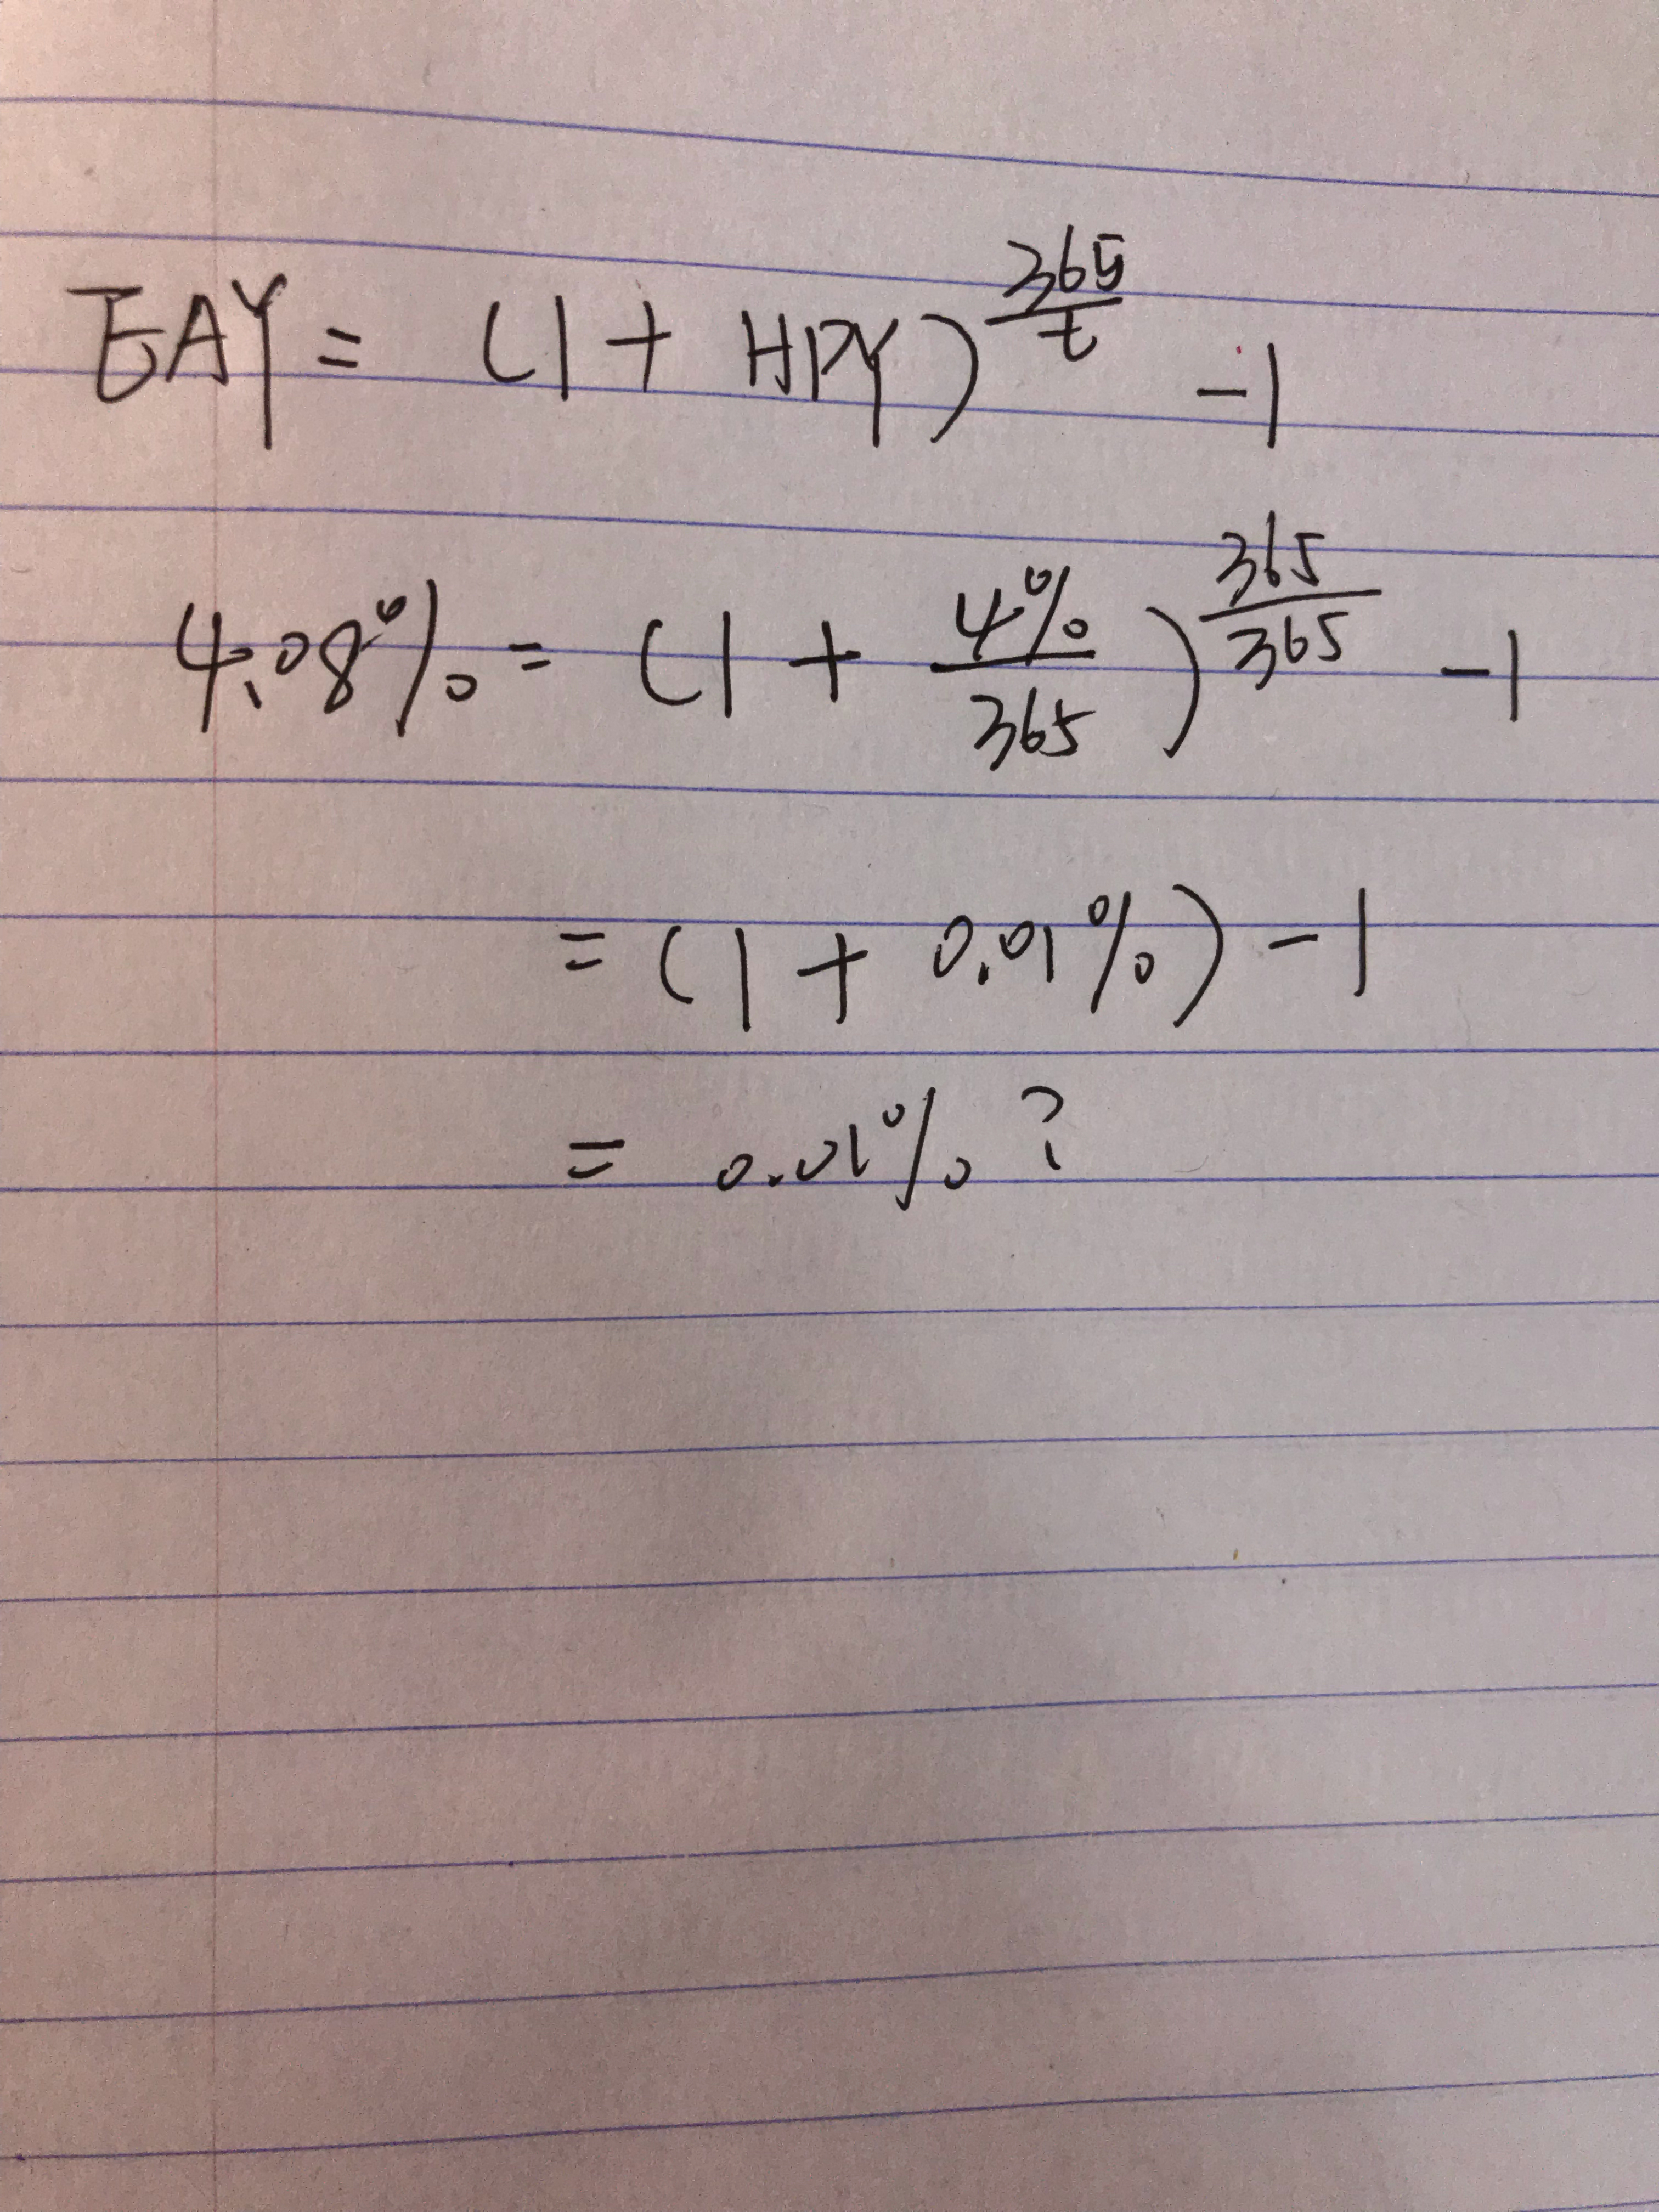 EAY = (1 + HPY)^(365/t) - 1
4.08% = (1 + 4%/365)^(365/365) - 1
= (1 + 0.01%) - 1
= 0.01% ?